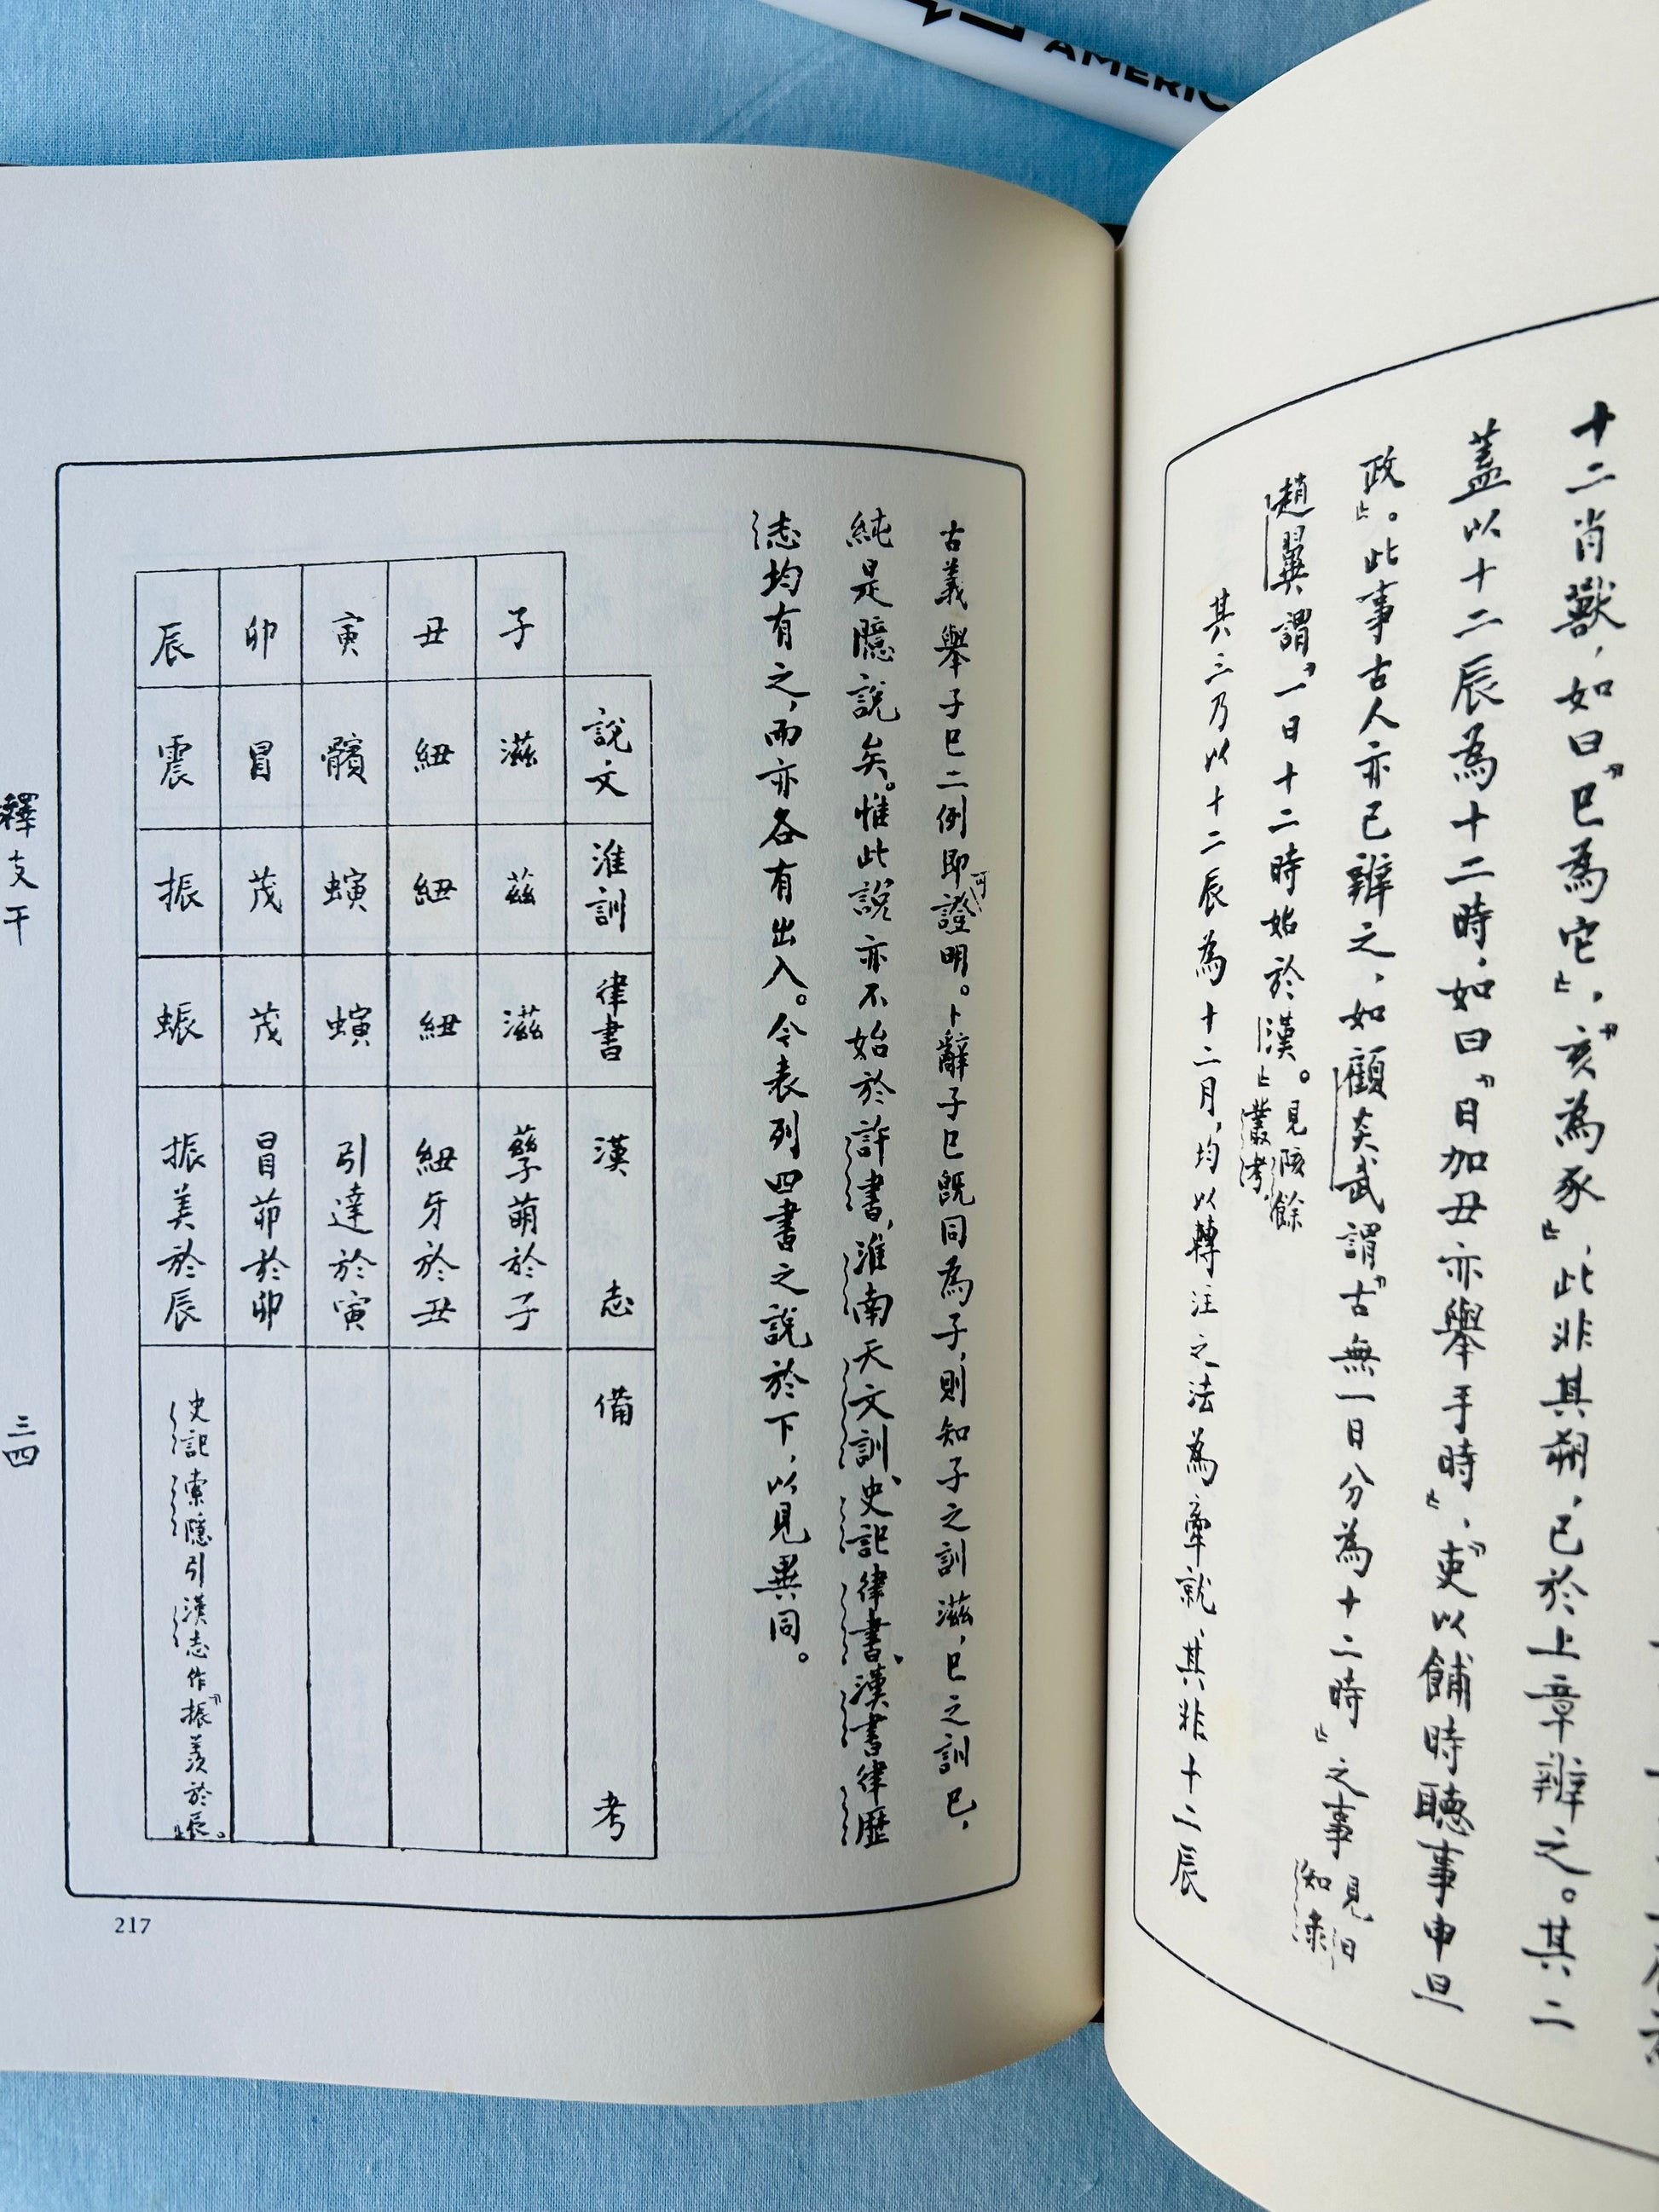 AMERIC
十二肖獸，如曰「巳為它」，「亥為豕」，此非其朔，已於上章辨之。其二
蓋以十二辰為十二時，如曰「日加丑亦舉手時」，「吏以餔時聽事申旦
政」。此事古人亦已辨之，如顧炎武謂「古無一日分為十二時」之事見日知录
趙翼謂「一日十二時始於漢。」見陔餘叢考，
其三乃以十二辰為十二月，均以轉注之法為牽就，其非十二辰
古義舉子巳二例即可證明。卜辭子巳既同為子，則知子之訓滋，巳之訓巳，
純是臆說矣。惟此說亦不始於許書，淮南天文訓、史記律書、漢書律歷
志均有之，而亦各有出入。今表列四書之說於下，以見異同。
說文 淮訓 律書 漢志 備考
子 滋 茲 滋 孳萌於子
丑 紐 紐 紐 紐牙於丑
寅 髕 螾 螾 引達於寅
卯 冒 茂 茂 冒茆於卯
辰 震 振 蜄 振美於辰 史記索隱引漢志作「振羨於辰」。
釋支干
三四
217